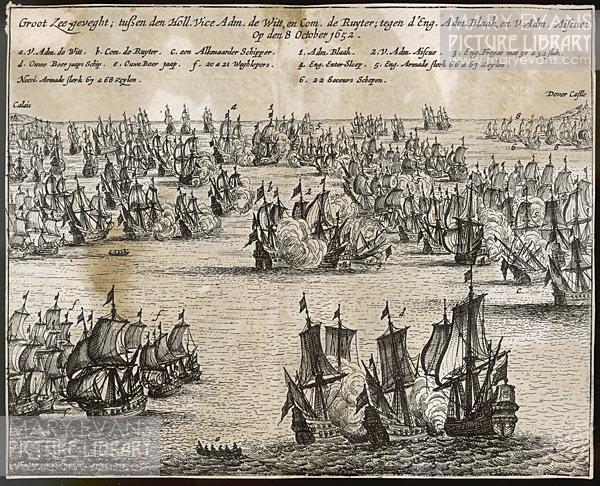 Groot Zee-geveght; tußen den Holl. Vice Adm. de Witt, en Com. de Ruyter; tegen d'Eng. Adm. Blaak, en V. Adm. Aiscue.
Op den 8 October 1652.
a. V. Adm. de Witt. b. Com. de Ruyter. c. een Alkmaarder Schipper.
d. Ouwe Boer jaaps Schip. e. Ouwe Boer jaap. f. 20 a 21 Weghlopers
Neerl. Armade sterk 67 a 68 Zeylen.
1. Adm. Blaak. 2. V. Adm. Aiscue 3. Eng. Fregat met 30 a 32 stuk.
4. Eng. Enter Sloep. 5. Eng. Armade sterk 66 a 67 Zeylen.
6. 22 Secours Schepen.
Calais
Dover Castle
MARY EVANS
PICTURE LIBRARY
MARY EVANS
PICTURE LIBRARY
MARY EVANS
PICTURE LIBRARY